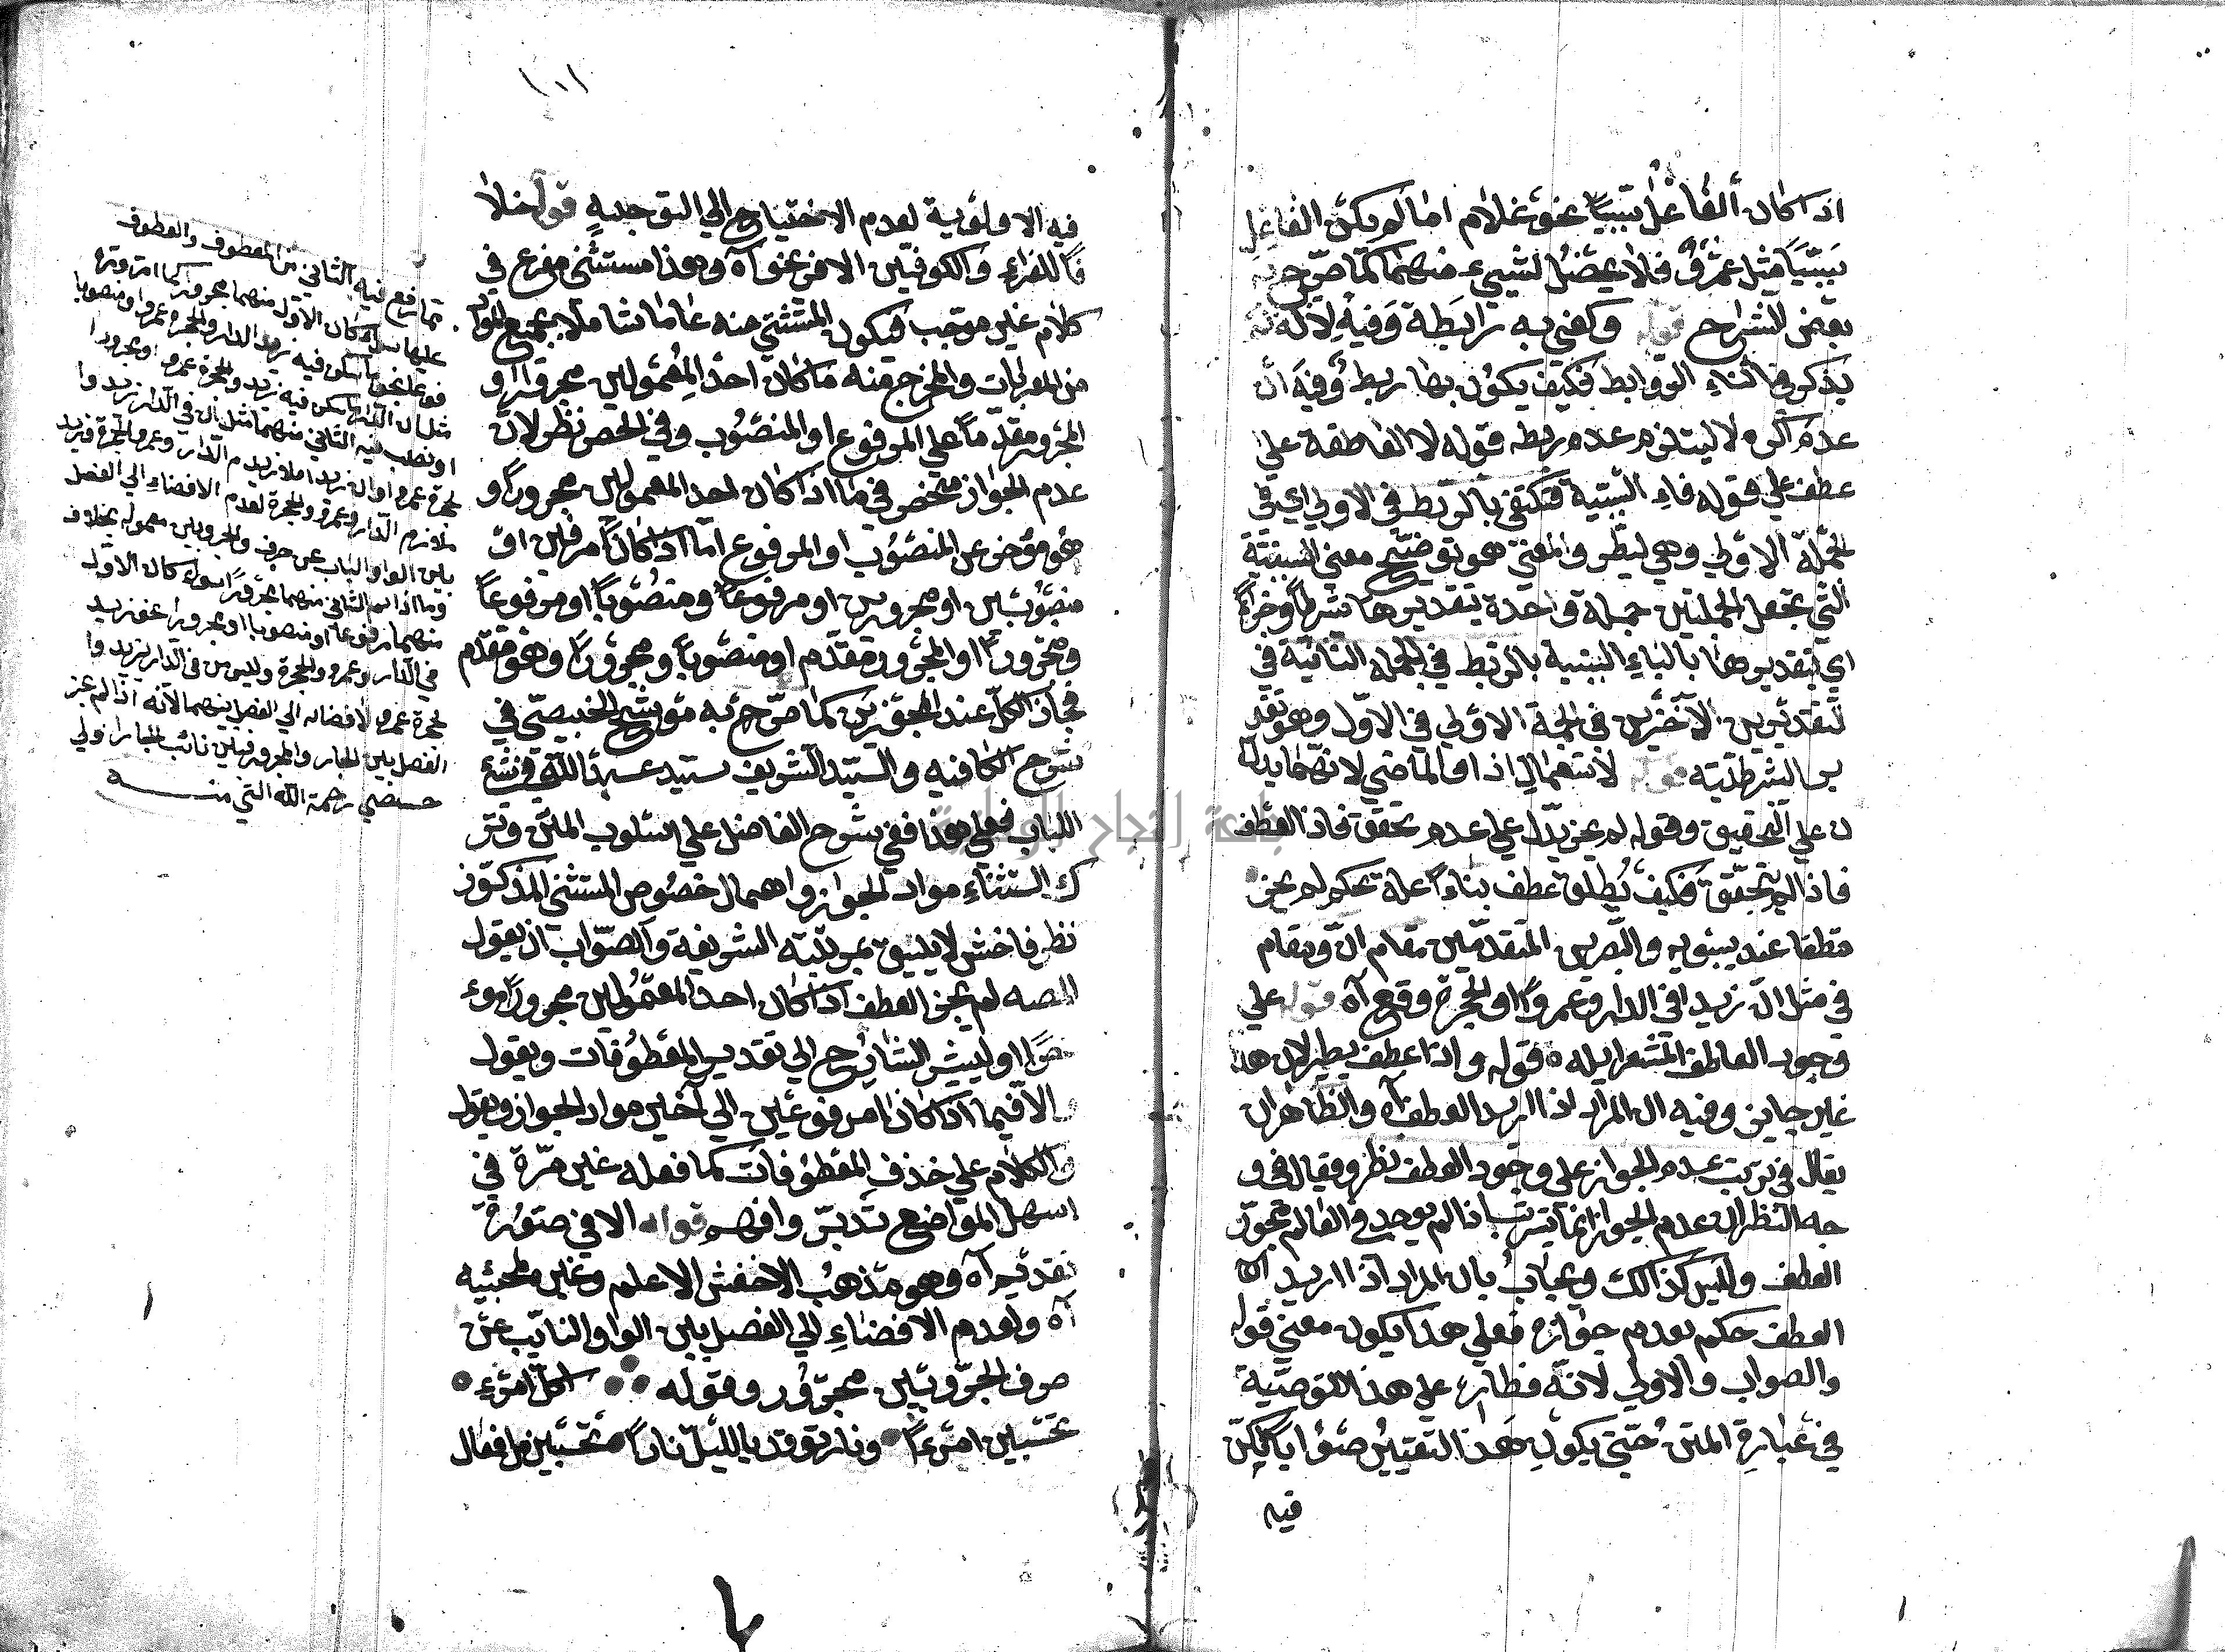 اذا كان الفاعل سببيا نحو غلام اما لو يكن الفاعل
سببيا مثل عمرو فلا يحصل لشيء منهما كما صرح به
بعض الشراح قوله وكفى به رابطة وفيه لانه لم
يذكر في اثناء الروابط فكيف يكون بها ربط وفيه ان
عدم ذكره لا يستلزم عدم ربطه قوله لا العاطفة على
عطف على قوله فاء السببية فتكتفى بالربط في الاولى اي في
الجملة الاولى وهي ليطير والمعنى هو توضيح معنى السببية
التي تجعل الجملتين جملة واحدة بتقديرها شرطا وجزاء
اي بتقديرها بالباء السببية بالربط في الجملة الثانية في
التقديرين الاخيرين في الجملة الاولى في الاول وهو تقد
ير الشرطية قوله لاستعمال اذا والماضي لانهما يدلا
ن على التحقيق وقوله لم يجز يدل على عدم تحقق فاذ العطف
فاذا لم يتحقق فكيف يطلق عطف بناء عليه بحكم لم يجز
مطلقا عند سيبويه والبصريين المتقدمين مقام ان ويقام
في مثل ان زيدا في الدار وعمروا والحجرة وقع آه قوله على
وجود العاطف المشعر ايله ه قوله واذا عطف يطير لان هذا
غير جايز وفيه ان المراد اذا اريد العطف آه والظاهر ان
يقال في ترتب عدم الجواز على وجود العطف نظر وفيقال في و
جه النظر ان عدم الجواز انما يترتب اذا لم يوجد في العالم مجوز
العطف وليس كذالك ويجاب بان المراد اذا اريد آه
العطف حكم بعدم جوازه فعلى هذا يكون معنى قوله
والصواب والاولى لانه خطاء على هذا التوصية
في عبارة المتن حتى يكون هذا التعيين صوابا لكن
فيه
١٠١
فيه الاولوية لعدم الاحتياج الى التوجيه قوله خلا
فا للفراء والكوفيين الا في نحو آه وهذا مستثنى مفرغ في
كلام غير موجب فيكون المستثنى منه عاما شاملا بجميع المواد
من المعربات والمخرج منه ما كان احد المعمولين مجرورا و
المجرور مقدما على المرفوع او المنصوب وفي الحصر نظر لان
عدم الجواز مختص في ما اذا كان احد المعمولين مجرورا و
هو مؤخر عن المنصوب او المرفوع اما اذا كانا مرفوعين او
منصوبين او مجرورين او مرفوعا ومنصوبا او مرفوعا
ومجرورا والمجرور مقدم او منصوبا ومجرورا وهو مقدم
فجاز الكل عند المجوزين كما صرح به موشح الخبيصي في
شرح الكافيه والسيد الشريف سيد عبد الله في شرح
اللباب فعلى هذا ففي شرح الفاضل على اسلوب المتن وتر
ك استثناء مواد الجواز واهمال خصوص المستثنى المذكور
نظر فاحش لا يليق بمرتبته الشريفة والصواب ان يقول
المصه لم يجز العطف اذا كان احد المعمولين مجرورا موء
خرا او ليشير الشارح الى تقدير المعطوفات ويقول
والا فيما اذا كانا مرفوعين الى آخر مواد الجواز ويقول
والكلام على حذف المعطوفات كما فعله غير مرة في
اسهل المواضع تدبر وافهم قوله الا في صورة
تقديم آه وهو مذهب الاخفش الاعلم وغير مجيئه
آه ولعدم الافضاء الى الفصل بين الواو النايب عن
حرف الجر وبين مجرور وقوله اكل امرء
تحسبين امرءا ونار توقد بالليل نارا تحسبين من افعال
مما رفع فيه الثاني من المعطوف والمعطوف
عليها سواء كان الاول منهما مجرورا كما مر ومرة
فوعا نحو ما سكن فيه زيد الدار والحجرة عمرو او منصوبا
مثل ان الدار ساكن فيه زيد والحجرة عمرو او مجرورا
او نصب فيه الثاني منهما مثل ان في الدار زيدا وا
لحجرة عمرو او ان زيدا ملازم الدار وعمرو الحجرة وزيد
ملازم الدار وعمرو والحجرة لعدم الافضاء الى الفصل
بين الواو النايب عن حرف والجر وبين معموله بخلاف
وما اذا لم الثاني منهما مجرورا سواء كان الاول
منهما مرفوعا او منصوبا او مجرورا نحو زيد
في الدار وعمرو والحجرة وليس في الدار زيد وا
لحجرة عمرو لافضائه الى الفصل بينهما لانه اذا لم يجز
الفصل بين الجار والمجرور فبين نائب الجار اولى
خبيصي رحمة الله التي منه
جامعة النجاح الوطنية